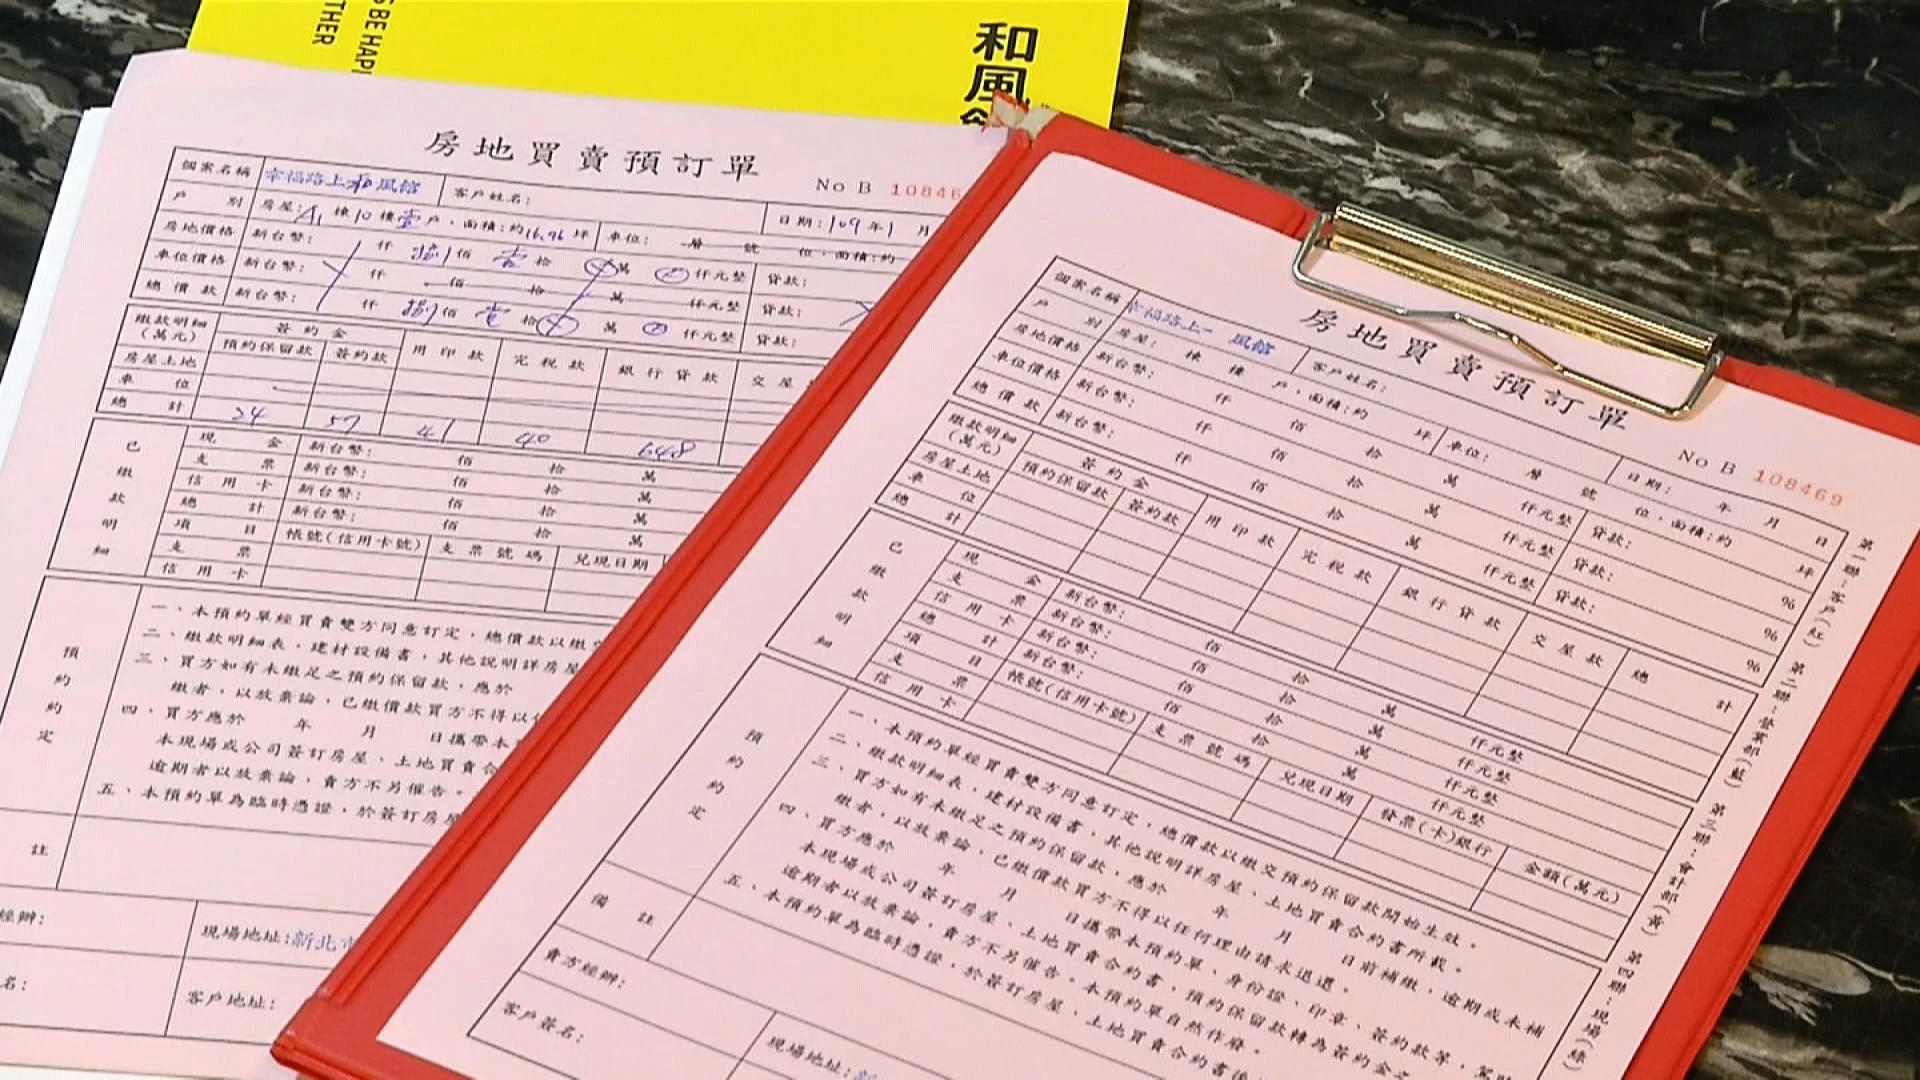 S BE HAPI
THER
和風
房地買賣預訂單
No B 10846
個案名稱 幸福路上和風館 客戶姓名: 日期:109年1月
戶別 房屋:A1棟10樓壹戶,面積:約16.96坪 車位: 層 號 位,面積:約
房地價格 新台幣: 仟 捌佰 壹拾 萬 仟元整 貸款:
車位價格 新台幣: 仟 佰 拾 萬 仟元整 貸款:
總價款 新台幣: 仟 捌佰 壹拾 萬 仟元整 貸款:
繳款明細(萬元) 簽約金 用印款 完稅款 銀行貸款 交屋
預約保留款 簽約款
房屋土地
車位
總計 24 57 41 40 648
已繳款明細
現金 新台幣: 佰 拾 萬
支票 新台幣: 佰 拾 萬
信用卡 新台幣: 佰 拾 萬
總計 新台幣: 佰 拾 萬
項目 帳號(信用卡號) 支票號碼 兌現日期
支票
信用卡
預約約定
一、本預約單經買賣雙方同意訂定,總價款以繳交
二、繳款明細表,建材設備書,其他說明詳房屋
三、買方如有未繳足之預約保留款,應於
繳者,以放棄論,已繳價款買方不得以
四、買方應於 年 月 日攜帶本
本現場或公司簽訂房屋、土地買賣合
逾期者以放棄論,賣方不另催告。
五、本預約單為臨時憑證,於簽訂房屋
註
經辦: 現場地址:新北市
名: 客戶地址:
房地買賣預訂單
No B 108469
個案名稱 幸福路上 風館 客戶姓名: 日期: 年 月 日
戶別 房屋: 棟 樓 戶,面積:約 坪 車位: 層 號 位,面積:約 坪
房地價格 新台幣: 仟 佰 拾 萬 仟元整 貸款: %
車位價格 新台幣: 仟 佰 拾 萬 仟元整 貸款: %
總價款 新台幣: 仟 佰 拾 萬 仟元整 貸款: %
繳款明細(萬元) 簽約金 用印款 完稅款 銀行貸款 交屋款 總計
預約保留款 簽約款
房屋土地
車位
總計
已繳款明細
現金 新台幣: 佰 拾 萬 仟元整
支票 新台幣: 佰 拾 萬 仟元整
信用卡 新台幣: 佰 拾 萬 仟元整
總計 新台幣: 佰 拾 萬 仟元整
項目 帳號(信用卡號) 支票號碼 兌現日期 發票(卡)銀行 金額(萬元)
支票
信用卡
預約約定
一、本預約單經買賣雙方同意訂定,總價款以繳交預約保留款開始生效。
二、繳款明細表,建材設備書,其他說明詳房屋、土地買賣合約書所載。
三、買方如有未繳足之預約保留款,應於 年 月 日前補繳,逾期或未補
繳者,以放棄論,已繳價款買方不得以任何理由請求退還。
四、買方應於 年 月 日攜帶本預約單、身份證、印章、簽約款等,駕
本現場或公司簽訂房屋、土地買賣合約書,預約保留款轉為簽約金之
逾期者以放棄論,賣方不另催告。本預約單自然作廢。
五、本預約單為臨時憑證,於簽訂房屋、土地買賣合約書後
備註
賣方經辦: 現場地址:新
客戶簽名:
第一聯:客戶(紅) 第二聯:營業部(藍) 第三聯:會計部(黃) 第四聯:現場(綠)